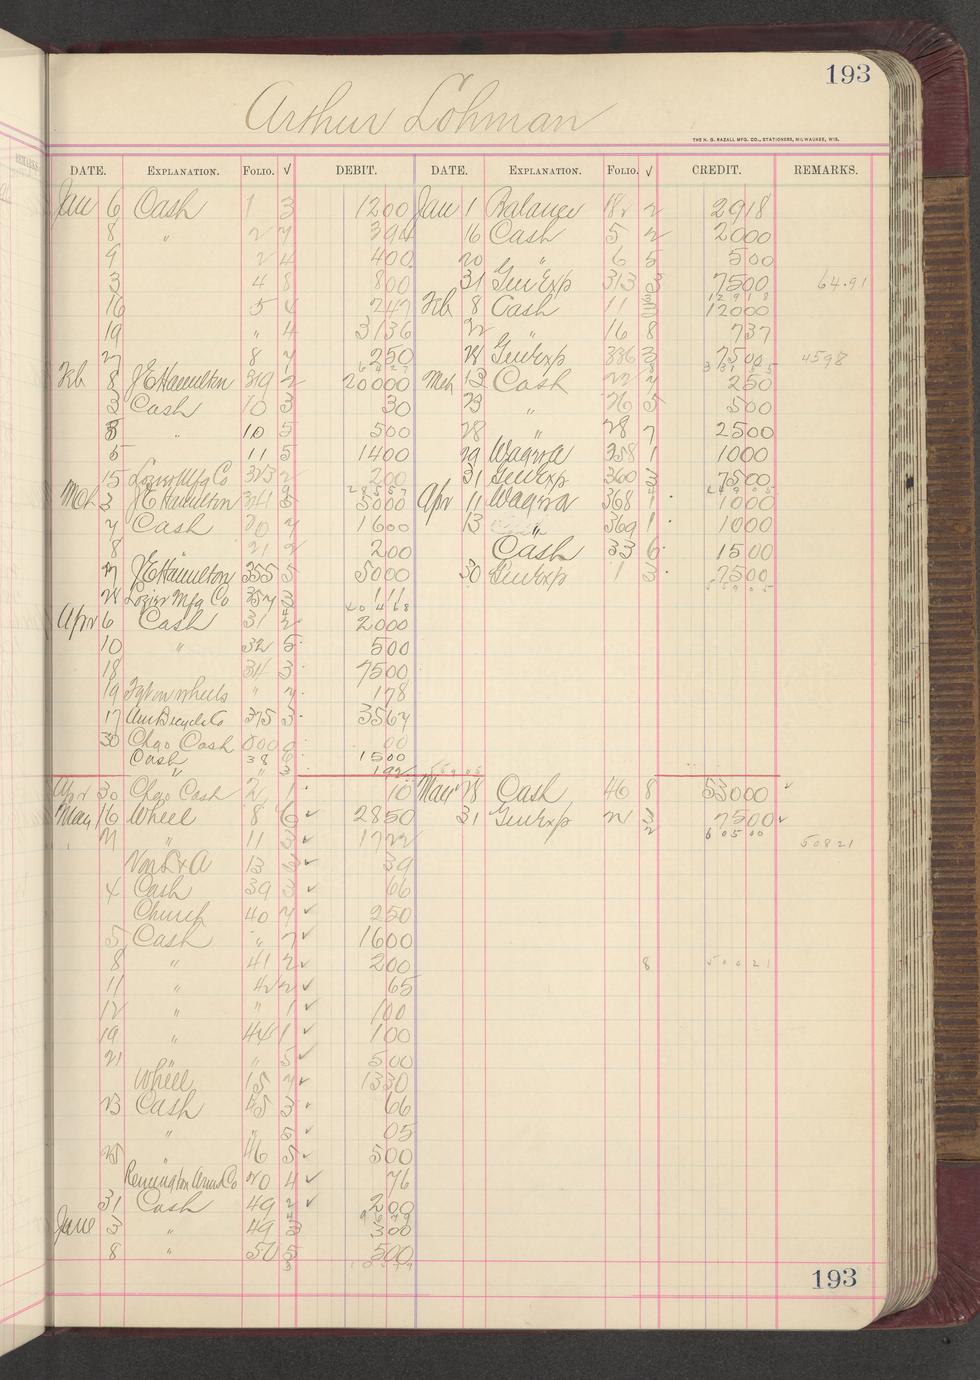 193
Arthur Lohman
THE H. G. RAZALL MFG. CO., STATIONERS, MILWAUKEE, WIS.
DATE. EXPLANATION. FOLIO. √ DEBIT. DATE. EXPLANATION. FOLIO. √ CREDIT. REMARKS.
Jan 6 Cash 1 3 1200 Jan 1 Balance 182 2 2918
8 " 2 7 394 16 Cash 5 2 2000
9 2 4 400 20 " 6 5 500
3 4 8 800 31 Gen Exp 313 3 7500 64.91
12918
16 5 4 247 Feb 8 Cash 11 12000
19 " 4 3136 22 " 16 8 737
27 8 7 250 28 Gen Exp 336 3 7500 4598
6427 33155
Feb 8 J E Hamilton 319 2 20000 Mch 13 Cash 22 7 250
3 Cash 10 3 30 23 " 26 5 500
8 " 10 5 500 28 " 28 7 2500
5 11 5 1400 29 Wagra 358 1 1000
15 Lozier Mfg Co 323 2 200 31 Gen Exp 360 3 7500
28557 44905
Mch 3 J E Hamilton 341 5 5000 Apr 11 Wagra 368 1 1000
7 Cash 20 7 1600 13 " 369 1 1000
8 " 21 2 200 Cash 33 6 1500
17 J E Hamilton 355 5 5000 30 Gen Exp 1 3 7500
55905
28 Lozier Mfg Co 357 3 111
40468
Apr 6 Cash 31 2 2000
10 " 32 5 500
18 34 3 7500
19 Fgt on wheels " 7 178
17 Am Bicycle Co 375 3 3567
30 Chgo Cash 000 0 00
Cash 38 6 1500
" " 3 192 55905
Apr 30 Chgo Cash 2 1 10 May 28 Cash 46 8 53000 ✓
May 16 Wheel 8 6 ✓ 2850 31 Gen Exp 2 3 7500 ✓
60500
21 " 11 3 ✓ 1722 50821
Von L & A 13 6 ✓ 39
4 Cash 39 3 ✓ 66
Church 40 7 ✓ 250
5 Cash " 7 ✓ 1600
8 " 41 2 ✓ 200 8 50021
11 " 42 2 ✓ 65
12 " " 1 ✓ 100
19 " 44 1 ✓ 100
21 " " 5 ✓ 500
Wheel 15 7 ✓ 1330
23 Cash 45 3 ✓ 66
" " 5 ✓ 05
25 " 46 5 ✓ 500
Remington Arms Co 20 4 ✓ 76
31 Cash 49 2 ✓ 200
9679
June 3 " 49 3 300
8 " 50 5 500
193